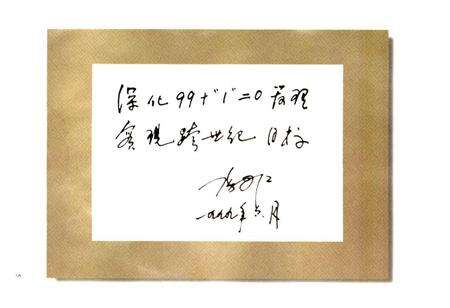 深化99+"1"=0管理
实现跨世纪目标
一九九九年六月